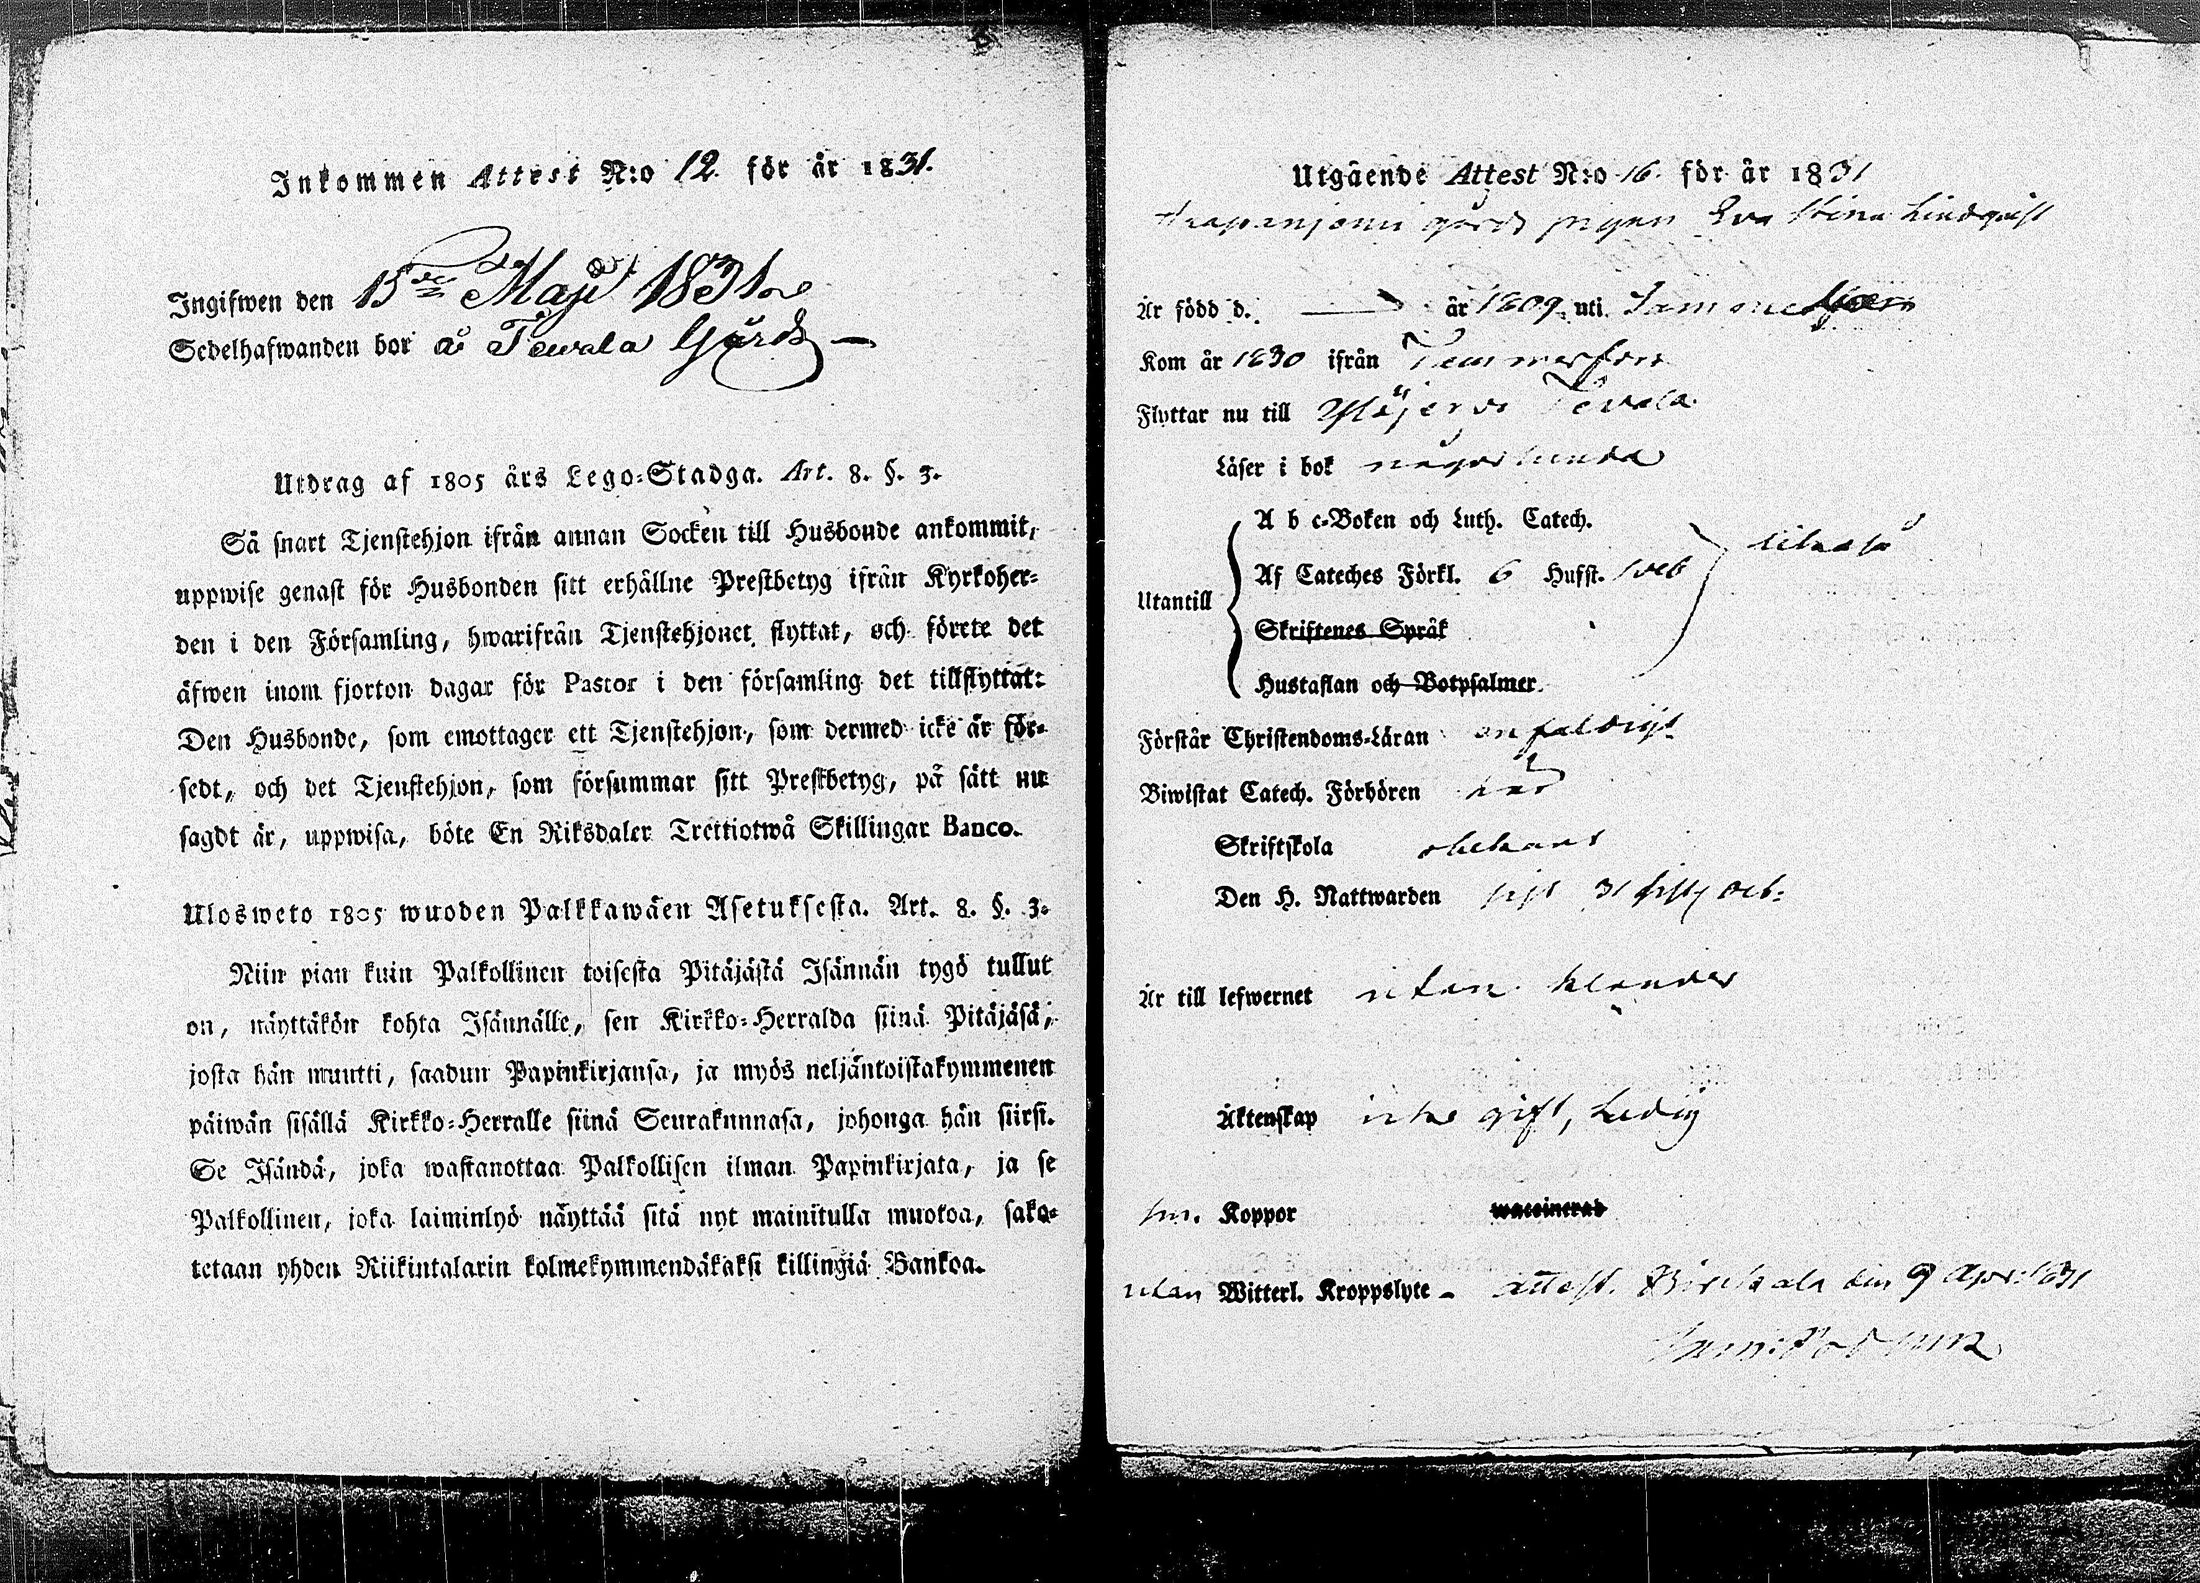 Inkommen Attest N:o 12. för år 1831.
Ingifwen den 15de Maji 1831
Sedelhafwanden bor å Tewala Gård
Utdrag af 1805 års Lego=Stadga. Art. 8. §. 3.
Så snart Tjenstehjon ifrån annan Socken till Husbonde ankommit,
uppwise genast för Husbonden sitt erhållne Prestbetyg ifrån Kyrkoher=
den i den Församling, hwarifrån Tjenstehjonet flyttat, och förete det
äfwen inom fjorton dagar för Pastor i den församling det tillflyttat:
Den Husbonde, som emottager ett Tjenstehjon, som dermed icke är för=
sedt, och det Tjenstehjon, som försummar sitt Prestbetyg, på sätt nu
sagdt är, uppwisa, böte En Riksdaler Trettiotwå Skillingar Banco.
Ulosweto 1805 wuoden Palkkawäen Asetuksesta. Art. 8. §. 3.
Niin pian kuin Palkollinen toisesta Pitäjästä Isännän tygö tullut
on, näyttäkön kohta Isännälle, sen Kirkko=Herralda siinä Pitäjäsä,
josta hän muutti, saadun Papinkirjansa, ja myös neljäntoistakymmenen
päiwän sisällä Kirkko=Herralle siinä Seurakunnasa, johonga hän siirsi.
Se Isändä, joka wastanottaa Palkollisen ilman Papinkirjata, ja se
Palkollinen, joka laiminlyö näyttää sitä nyt mainitulla muotoa, sako=
tetaan yhden Riikintalarin kolmekymmendäkaksi killingiä Bankoa.
Utgående Attest N:o 16. för år 1831
gårds pigan Eva Stina Lindqvist
Är född d. — år 1809 uti
Kom år 1830 ifrån Tammerfors
Flyttar nu till Ylöjervi Tevala
Läser i bok någorlunda
Utantill
A b c=Boken och Luth. Catech.
Af Cateches Förkl. 6 Hufst.
Skriftenes Språk
Hustaflan och Botpsalmer.
likaså
Förstår Christendoms=Läran enfaldigt
Biwistat Catech. Förhören här
Skriftskola obekant
Den H. Nattwarden sist 31 Octb:
Är till lefwernet utan klander
Äktenskap icke gift, Ledig
Koppor waccinerad
utan Witterl. Kroppslyte - attest. Birckala den 9 April 31